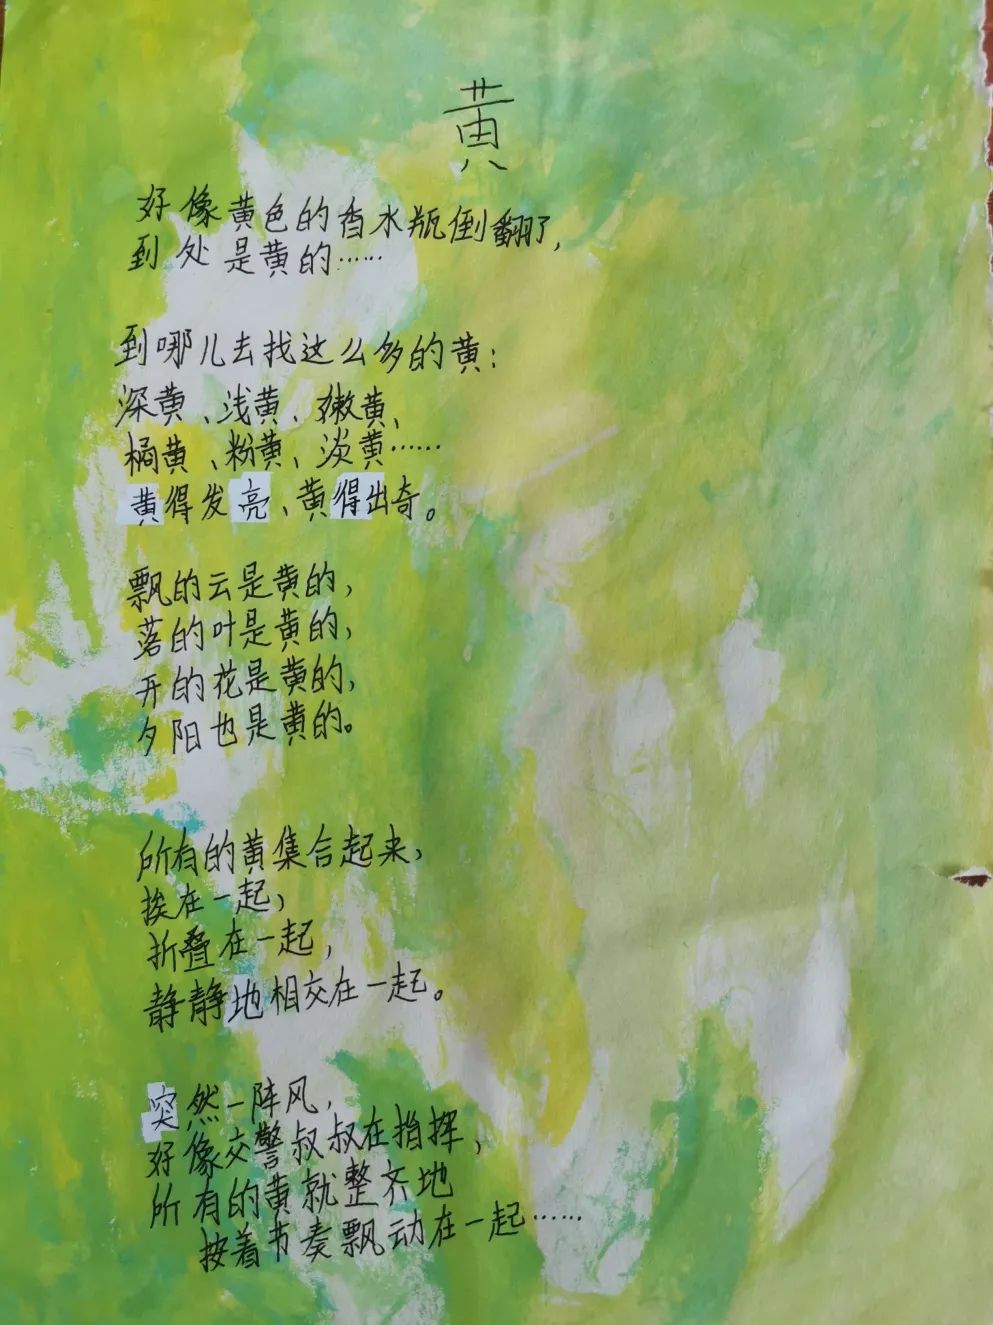 黄
好像黄色的香水瓶倒翻了,
到处是黄的……
到哪儿去找这么多的黄:
深黄、浅黄、嫩黄、
橘黄、粉黄、淡黄……
黄得发亮、黄得出奇。
飘的云是黄的,
落的叶是黄的,
开的花是黄的,
夕阳也是黄的。
所有的黄集合起来,
挨在一起,
折叠在一起,
静静地相交在一起。
突然一阵风,
好像交警叔叔在指挥,
所有的黄就整齐地
按着节奏飘动在一起……